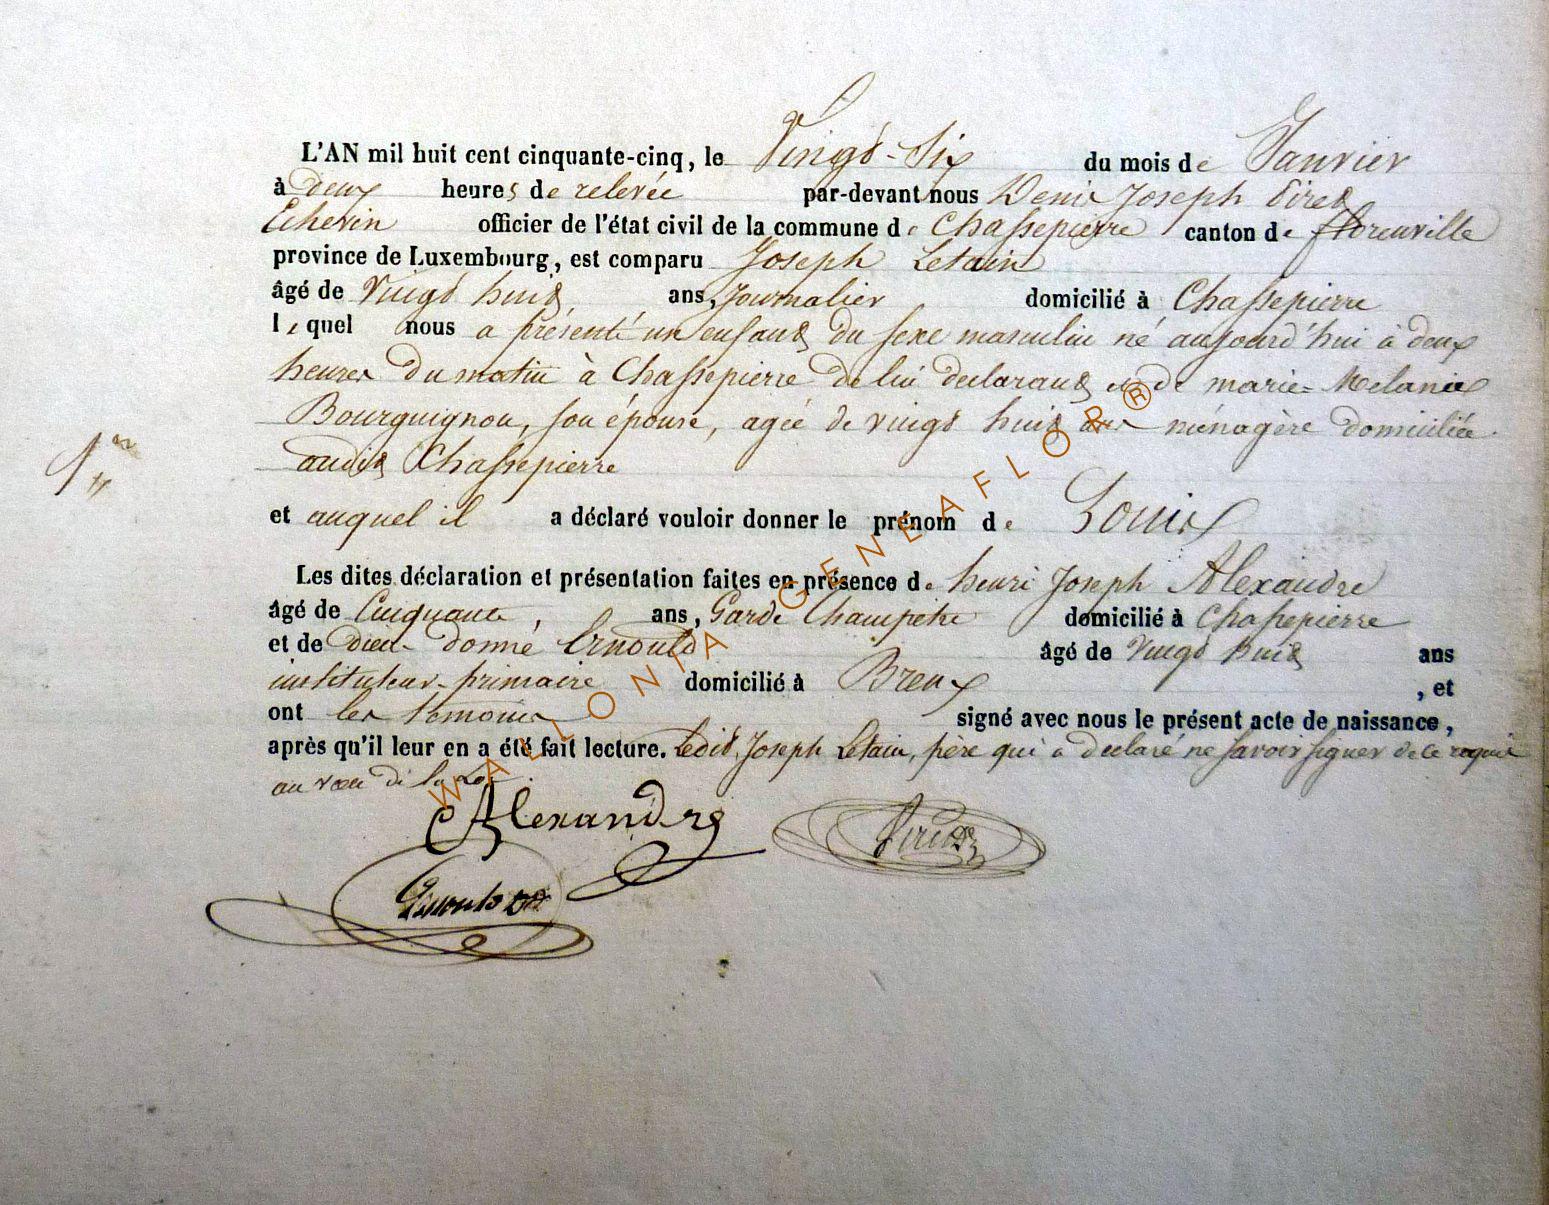 L'AN mil huit cent cinquante-cinq, le Vingt-Six du mois de Janvier
à deux heures de relevée par-devant nous Denis Joseph Piret
Echevin officier de l'état civil de la commune de Chassepierre canton de florenville
province de Luxembourg, est comparu Joseph Letain
âgé de Vingt huit ans, Journalier domicilié à Chassepierre
lequel nous a présenté un enfant du sexe masculin né aujourd'hui à deux
heures du matin à Chassepierre de lui declarant et de marie-Melanie
Bourguignon, son épouse, agée de vingt huit ans ménagère domiciliée
audit Chassepierre
1er
et auquel il a déclaré vouloir donner le prénom de Louis
Les dites déclaration et présentation faites en présence de henri Joseph Alexandre
âgé de Cinquante, ans, Garde Champetre domicilié à Chassepierre
et de Dieu-donné Arnould âgé de Vingt huit ans
instituteur-primaire domicilié à Breux, et
ont les témoins signé avec nous le présent acte de naissance,
après qu'il leur en a été fait lecture. Ledit Joseph Letain, père qui a declaré ne savoir signer de ce requis
au vœu de la Loi.
Alexandre
Piret
WALLONIA GENEAFLOR®